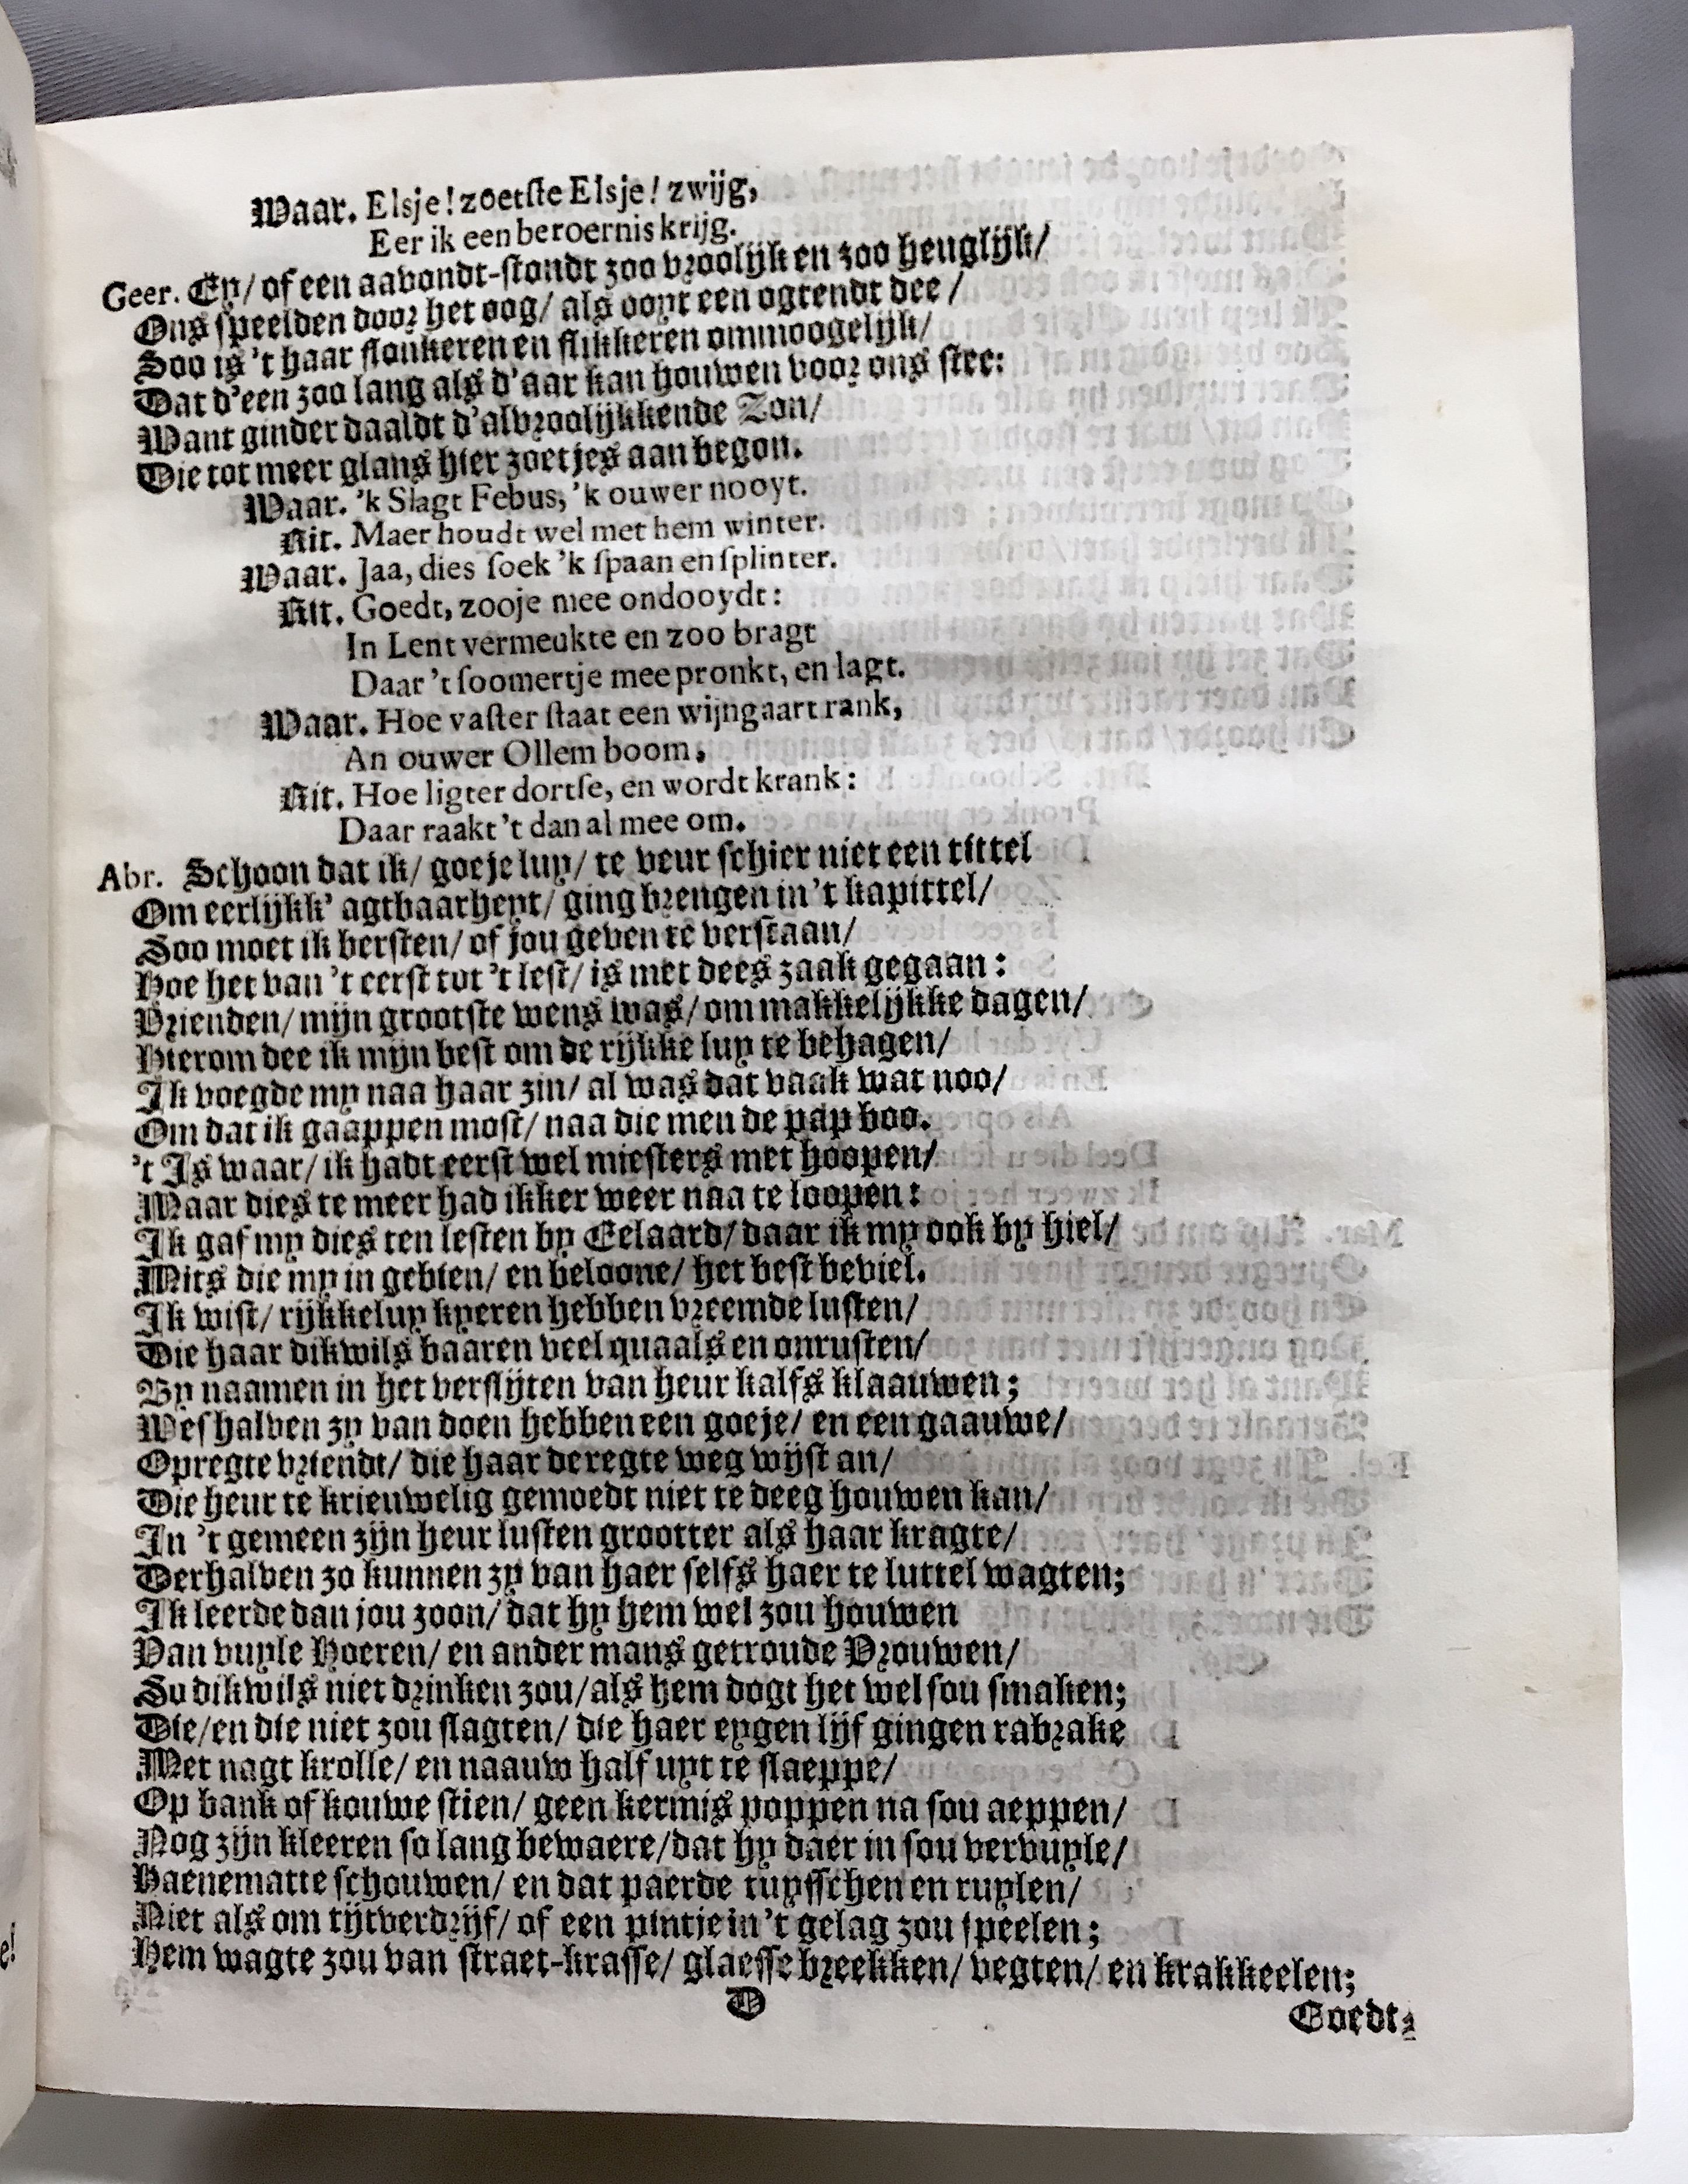 Waar. Elsje! zoetste Elsje! zwijg,
Eer ik een beroernis krijg.
Geer. Ey/ of een aavondt-stondt zoo vroolijk en zoo heuglijk/
Ons speelden door het oog/ als ooyt een ogtendt dee/
Soo is 't haar flonkeren en flikkeren ommoogelijk/
Dat d'een zoo lang als d'aar kan houwen voor ons stee:
Want ginder daaldt d'alvroolijkkende Zon/
Die tot meer glans hier zoetjes aan begon.
Waar. 'k Slagt Febus, 'k ouwer nooyt.
Kit. Maer houdt wel met hem winter.
Waar. Jaa, dies soek 'k spaan en splinter.
Kit. Goedt, zooje mee ondooydt:
In Lent vermeukte en zoo bragt
Daar 't soomertje mee pronkt, en lagt.
Waar. Hoe vaster staat een wijngaart rank,
An ouwer Ollem boom,
Kit. Hoe ligter dortse, en wordt krank:
Daar raakt 't dan al mee om.
Abr. Schoon dat ik/ goeje luy/ te veur schier niet een tittel
Om eerlijkk' agtbaarheyt/ ging brengen in 't kapittel/
Soo moet ik bersten/ of jou geven te verstaan/
Hoe het van 't eerst tot 't lest/ is met dees zaak gegaan:
Vrienden/ mijn grootste wens was/ om makkelijkke dagen/
Hierom dee ik mijn best om de rijkke luy te behagen/
Ik voegde my naa haar zin/ al was dat vaak wat noo/
Om dat ik gaappen most/ naa die men de pap boo.
't Is waar/ ik hadt eerst wel miesters met hoopen/
Maar dies te meer had ikker weer naa te loopen:
Ik gaf my dies ten lesten by Eelaard/ daar ik my ook by hiel/
Mits die my in gebien/ en beloone/ het best beviel.
Ik wist/ rijkkeluy kyeren hebben vreemde lusten/
Die haar dikwils baaren veel quaals en onrusten/
By naamen in het verslijten van heur kalfs klaauwen;
Weshalven zy van doen hebben een goeje/ en een gaauwe/
Opregte vriendt/ die haar de regte weg wijst an/
Die heur te krieuwelig gemoedt niet te deeg houwen kan/
In 't gemeen zijn heur lusten grootter als haar kragte/
Derhalven zo kunnen zy van haer selfs haer te luttel wagten;
Ik leerde dan jou zoon/ dat hy hem wel zou houwen
Van vuyle Hoeren/ en ander mans getroude Vrouwen/
So dikwils niet drinken zou/ als hem dogt het wel sou smaken;
Die/ en die niet zou slagten/ die haer eygen lijf gingen rabrake
Met nagt krolle/ en naauw half uyt te slaeppe/
Op bank of kouwe stien/ geen kermis poppen na sou aeppen/
Nog zijn kleeren so lang bewaere/ dat hy daer in sou vervuyle/
Haenematte schouwen/ en dat paerde tuysschen en ruylen/
Niet als om tijtverdrijf/ of een pintje in 't gelag zou speelen;
Hem wagte zou van straet-krasse/ glaesse breekken/ vegten/ en krakkeelen;
D
Goedt,